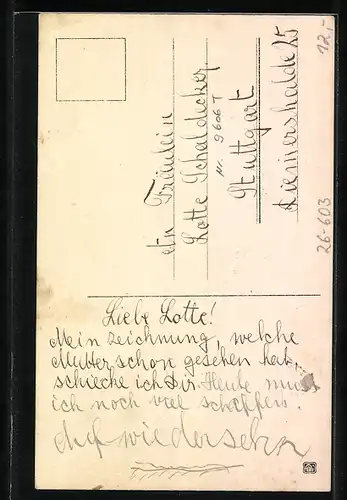 An Fräulein
Lotte Schaldecker
Nr. 9606 T
Stuttgart
Diemershalde 25
12,-
26-603
Liebe Lotte!
Mein zeichnung, welche
Mutter schon gesehen hat,
schicke ich Dir. Heute muss
ich noch viel schaffen.
Auf wiedersehn